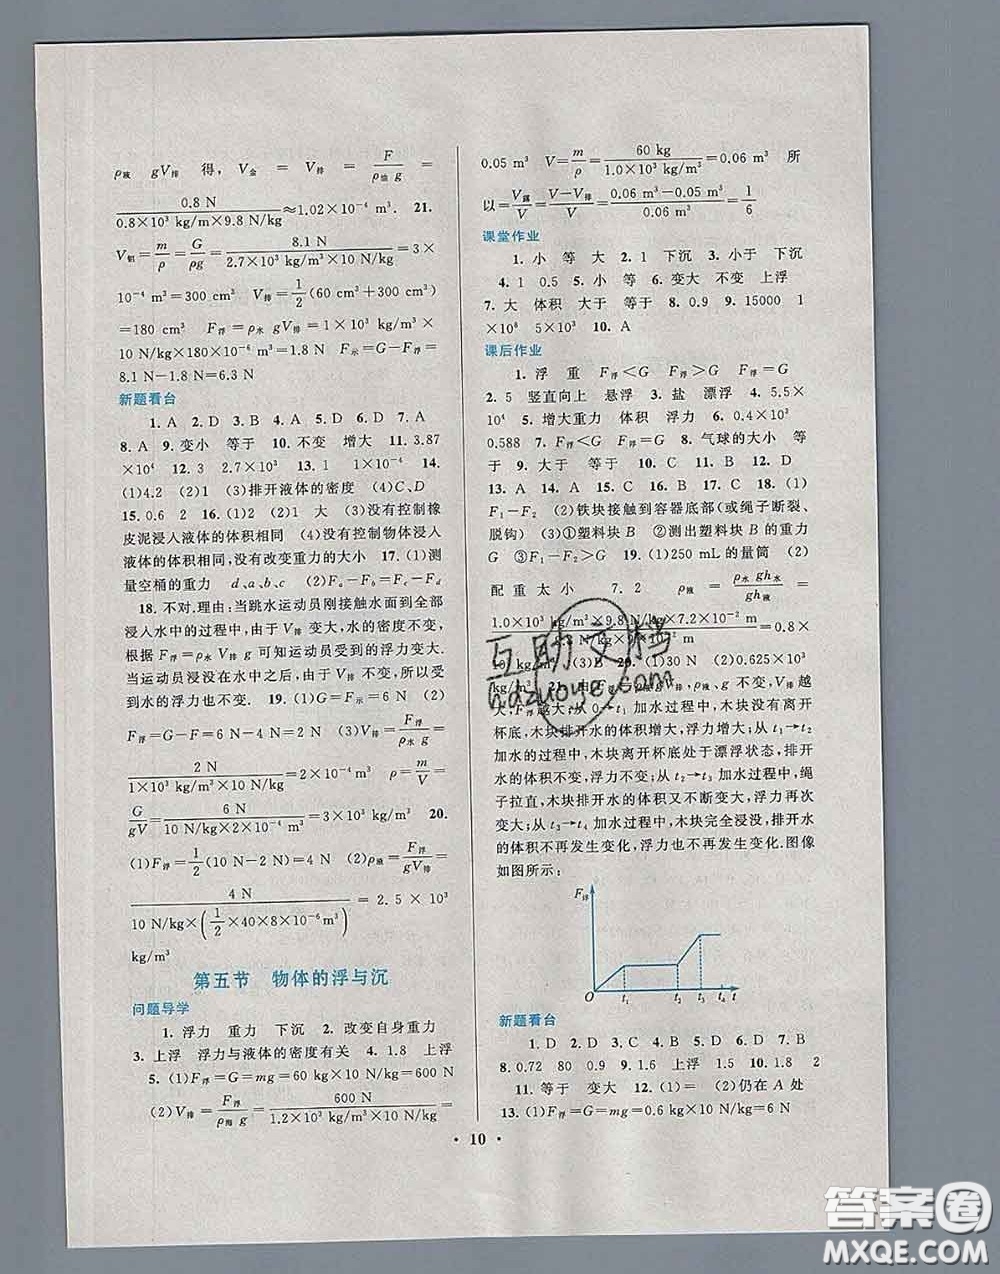 ρ液 gV排 得, V金 = V排 = F/(ρ油 g) =
0.8 N/(0.8×10³ kg/m×9.8 N/kg)≈1.02×10⁻⁴ m³. 21.
V铝=m/ρ=G/(ρg)=8.1 N/(2.7×10³ kg/m³×10 N/kg)=3×
10⁻⁴ m³=300 cm³ V排=1/2(60 cm³+300 cm³)
=180 cm³ F浮=ρ水 gV排=1×10³ kg/m³×
10 N/kg×180×10⁻⁶ m³=1.8 N F示=G-F浮=
8.1 N-1.8 N=6.3 N
新题看台
1. A 2. D 3. B 4. A 5. D 6. D 7. A
8. A 9. 变小 等于 10. 不变 增大 11. 3.87
×10⁴ 12. 3 2.7×10³ 13. 1 1×10⁻⁴ 14.
(1)4.2 (2)1 (3)排开液体的密度 (4)C、D
15. 0.6 2 16. (1)2 (2)1 大 (3)没有控制橡
皮泥浸入液体的体积相同 (4)没有控制物体浸入
液体的体积相同,没有改变重力的大小 17. (1)测
量空桶的重力 d、a、b、c (2)Fₐ-F_b=F_c-F_d
18. 不对.理由:当跳水运动员刚接触水面到全部
浸入水中的过程中,由于 V排 变大,水的密度不变,
根据 F浮=ρ水 V排 g 可知运动员受到的浮力变大.
当运动员浸没在水中之后,由于 V排 不变,所以受
到水的浮力也不变. 19. (1)G=F示=6 N (2)
F浮=G-F=6 N-4 N=2 N (3)V排=F浮/(ρ水 g)=
2 N/(1×10³ kg/m³×10 N/kg)=2×10⁻⁴ m³ ρ=m/V=
G/(gV)=6 N/(10 N/kg×2×10⁻⁴ m³)=3×10³ kg/m³ 20.
(1)F浮=1/2(10 N-2 N)=4 N (2)ρ液=F浮/(gV排)=
4 N/(10 N/kg×(1/2×40×8×10⁻⁶m³)) = 2.5×10³
kg/m³
第五节 物体的浮与沉
问题导学
1. 浮力 重力 下沉 2. 改变自身重力
3. 上浮 浮力与液体的密度有关 4. 1.8 上浮
5. (1)F浮=G=mg=60 kg×10 N/kg=600 N
(2)V排=F浮/(ρ海 g)=600 N/(1.2×10³ kg/m³×10 N/kg)=
0.05 m³ V=m/ρ=60 kg/(1.0×10³ kg/m³)=0.06 m³ 所
以=V露/V=(V-V排)/V=(0.06 m³-0.05 m³)/0.06 m³=1/6
课堂作业
1. 小 等 大 2. 1 下沉 3. 小于 下沉
4. 1 0.5 5. 小 等 6. 变大 不变 上浮
7. 大 体积 大于 等于 8. 0.9 9. 15000 1
×10⁸ 5×10³ 10. A
课后作业
1. 浮 重 F浮<G F浮>G F浮=G
2. 5 竖直向上 悬浮 3. 盐 漂浮 4. 5.5×
10⁴ 5. 增大重力 体积 浮力 6. 0.4×10³
0.588 7. F浮<G F浮=G 8. 气球的大小 等
于 9. 大于 等于 10. C 11. B 12. D
13. A 14. A 15. C 16. B 17. C 18. (1)
F₁-F₂ (2)铁块接触到容器底部(或绳子断裂、
脱钩) (3)①塑料块 ②测出塑料块 B 的重力
G ③F₁-F₂>G 19. (1)250 mL的量筒 (2)
配重太小 7.2 ρ液 = ρ水 gh水/gh液 =
1.0×10³ kg/m³×9.8 N/kg×7.2×10⁻² m =0.8×
kg/m³ (3)B 20. (1)30 N (2)0.625×10³
kg/m³ 不变,V排 越
大,F浮越大;从 0→t₁ 加水过程中,木块没有离开
杯底,木块排开水的体积增大,浮力增大;从 t₁→t₂
加水的过程中,木块离开杯底处于漂浮状态,排开
水的体积不变,浮力不变;从 t₂→t₃ 加水过程中,绳
子拉直,木块排开水的体积又不断变大,浮力再次
变大;从 t₃→t₄ 加水过程中,木块完全浸没,排开水
的体积不再发生变化,浮力也不再发生变化.图像
如图所示:
F浮
O t₁ t₂ t₃ t₄ t
新题看台
1. D 2. D 3. C 4. C 5. B 6. D 7. B
8. 0.72 80 0.9 9. 1.6 上浮 1.5 10. 1.8 2
11. 等于 变大 12. (1)= (2)仍在 A 处
13. (1)F浮=G=mg=0.6 kg×10 N/kg=6 N
• 10 •
互助文档
hdzuoye.com
答案圈
MXQE.COM